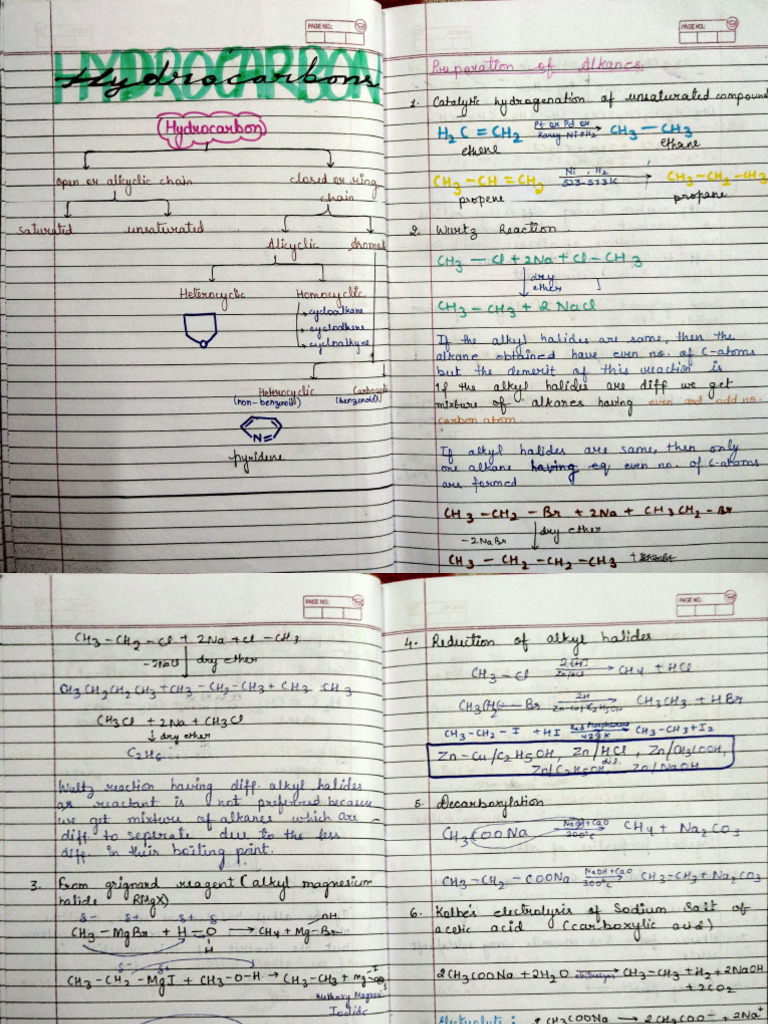 PAGE NO.:
HYDROCARBON
Hydrocarbons
Hydrocarbon
open or alicyclic chain
closed or ring
chain
saturated
unsaturated
Alicyclic
Heterocyclic
Homocyclic
cycloalkane
cycloalkene
cycloalkyne
Heterocyclic
(non-benzenoid)
(benzenoid)
N
pyridene
PAGE NO.:
Preparation of Alkanes
1. Catalytic hydrogenation of unsaturated compound
H2C = CH2 Pt or Pd or Raney Ni + H2 CH3 — CH3
ethene ethane
CH3 — CH = CH2 Ni, H2 523-573K CH3 — CH2 — CH3
propene propane
2. Wurtz Reaction
CH3 — Cl + 2Na + Cl — CH3
dry
ether
CH3 — CH3 + 2 NaCl
If the alkyl halides are same, then the
alkane obtained have even no. of C-atoms
but the demerit of this reaction is
if the alkyl halides are diff we get
mixture of alkanes having even and odd no.
carbon atom.
If alkyl halides are same, then only
one alkane having eq even no. of C-atoms
are formed
CH3 — CH2 — Br + 2Na + CH3 CH2 — Br
-2NaBr dry ether
CH3 — CH2 — CH2 — CH3 +
PAGE NO.:
CH3 — CH2 — Cl + 2Na + Cl — CH3
-2NaCl dry ether
CH3 CH2 CH2 CH3 + CH3 — CH2 — CH3 + CH3 CH3
CH3Cl + 2Na + CH3Cl
dry ether
C2H6
Wultz reaction having diff. alkyl halides
as reactant is not preferred because
we get mixture of alkanes which are
diff. to seperate due to the less
diff. in their boiling point.
3. From grignard reagent (alkyl magnesium
halide RMgX)
δ- δ+ δ+ δ- OH
CH3 — MgBr + H — O → CH4 + Mg-Br
H
δ- δ+
CH3 — CH2 — MgI + CH3 — O — H → CH3 — CH3 + Mg
Iodide
PAGE NO.:
4. Reduction of alkyl halides
CH3 — Cl 2[H] Zn/HCl CH4 + HCl
CH3CH2 — Br 2H Zn-Cu/C2H5OH CH3CH3 + HBr
CH3 — CH2 — I + HI Red Phosphorus 423K CH3 — CH3 + I2
Zn-Cu/C2H5OH, Zn/HCl, Zn/CH3COOH,
Zn/C2H5OH, Zn/NaOH
5. Decarboxylation
CH3COONa NaOH + CaO 300°C CH4 + Na2CO3
CH3 — CH2 — COONa NaOH + CaO 300°C CH3 — CH3 + Na2CO3
6. Kolbe's electrolysis of Sodium Salt of
acetic acid (carboxylic acid)
2CH3COONa + 2H2O electrolysis CH3 — CH3 + H2 + 2NaOH
+ 2CO2
CH3COONa → 2CH3COO- + 2Na+